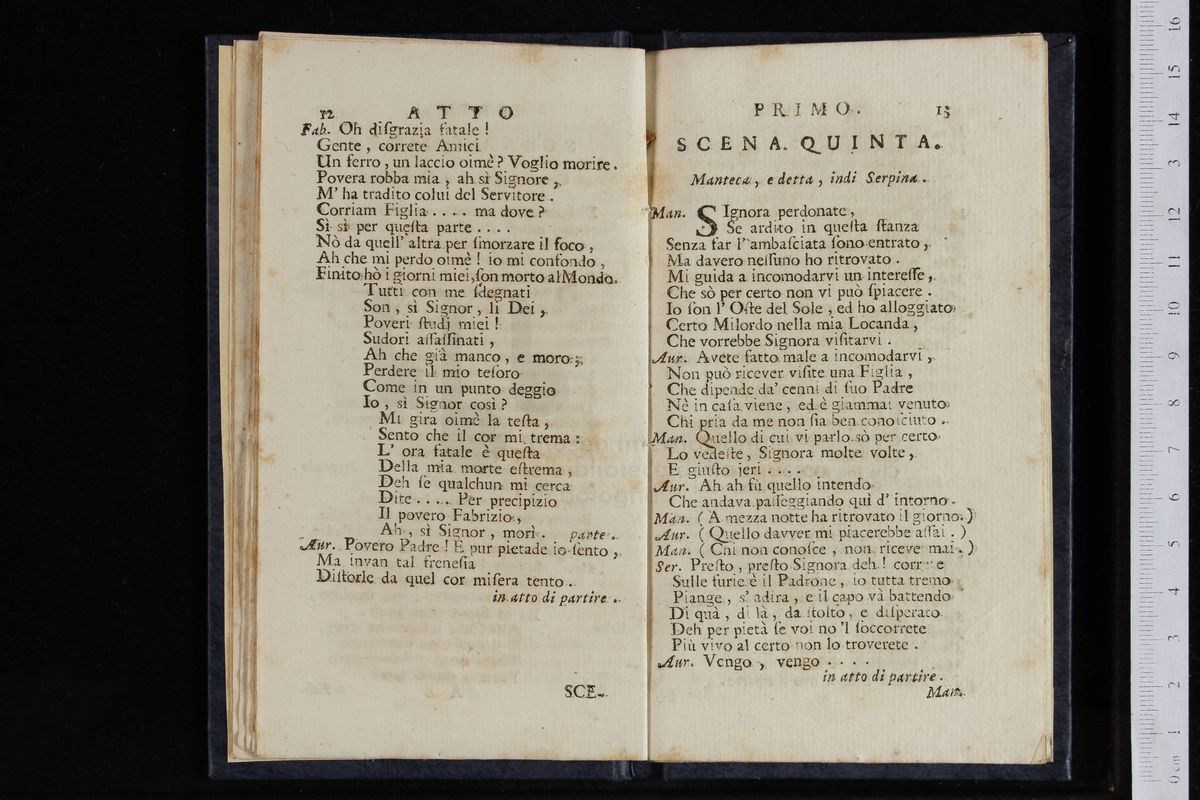 12 ATTO
Fab. Oh diſgrazia fatale !
Gente , correte Amici
Un ferro , un laccio oimè ? Voglio morire .
Povera robba mia , ah sì Signore ,
M' ha tradito colui del Servitore .
Corriam Figlia . . . . ma dove ?
Sì sì per queſta parte . . . .
Nò da quell' altra per ſmorzare il foco ,
Ah che mi perdo oimè ! io mi confondo ,
Finito hò i giorni miei, ſon morto al Mondo.
Tutti con me ſdegnati
Son , sì Signor , li Dei ,
Poveri ſtudj miei !
Sudori aſſaſſinati ,
Ah che già manco , e moro ;
Perdere il mio teſoro
Come in un punto deggio
Io , sì Signor così ?
Mi gira oimè la teſta ,
Sento che il cor mi trema :
L' ora fatale è queſta
Della mia morte eſtrema ,
Deh ſe qualchun mi cerca
Dite . . . . Per precipizio
Il povero Fabrizio ,
Ah , sì Signor , morì . parte .
Aur. Povero Padre ! E pur pietade io ſento ,
Ma invan tal freneſia
Diſtorle da quel cor miſera tento .
in atto di partire .
SCE-
PRIMO. 13
SCENA QUINTA.
Manteca , e detta , indi Serpina .
Man. SIgnora perdonate ,
Se ardito in queſta ſtanza
Senza far l' ambaſciata ſono entrato ,
Ma davero neſſuno ho ritrovato .
Mi guida a incomodarvi un intereſſe ,
Che sò per certo non vi può ſpiacere .
Io ſon l' Oſte del Sole , ed ho alloggiato
Certo Milordo nella mia Locanda ,
Che vorrebbe Signora viſitarvi .
Aur. Avete fatto male a incomodarvi ,
Non può ricever viſite una Figlia ,
Che dipende da' cenni di ſuo Padre
Nè in caſa viene , ed è giammai venuto
Chi pria da me non ſia ben conoſciuto .
Man. Quello di cui vi parlo sò per certo
Lo vedeſte , Signora molte volte ,
E giuſto jeri . . . .
Aur. Ah ah fù quello intendo
Che andava paſſeggiando quì d' intorno .
Man. ( A mezza notte ha ritrovato il giorno. )
Aur. ( Quello davver mi piacerebbe aſſai . )
Man. ( Chi non conoſce , non riceve mai . )
Ser. Preſto , preſto Signora deh ! correte
Sulle furie è il Padrone , io tutta tremo
Piange , s' adira , e il capo và battendo
Di quà , di là , da ſtolto , e diſperato
Deh per pietà ſe voi no 'l ſoccorrete
Più vivo al certo non lo troverete .
Aur. Vengo , vengo . . . .
in atto di partire .
Man.
0 cm 1 2 3 4 5 6 7 8 9 10 11 12 13 14 15 16